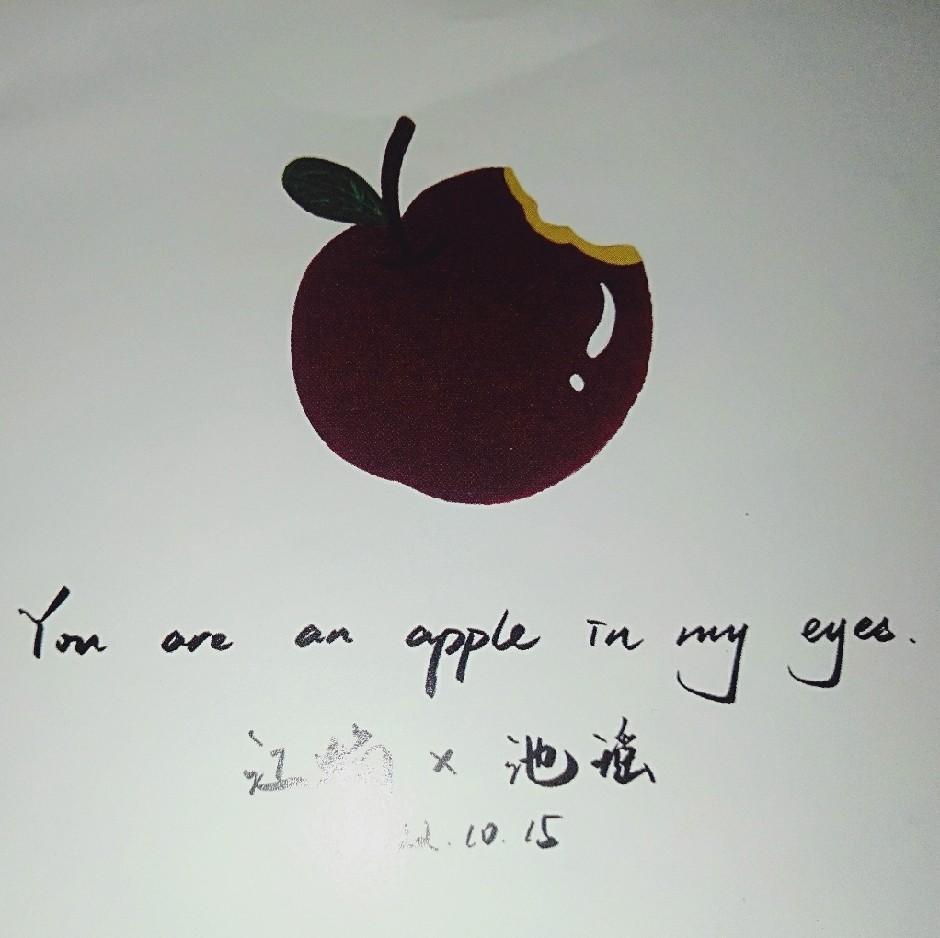 You are an apple in my eyes.
江 × 池谣
22.10.15